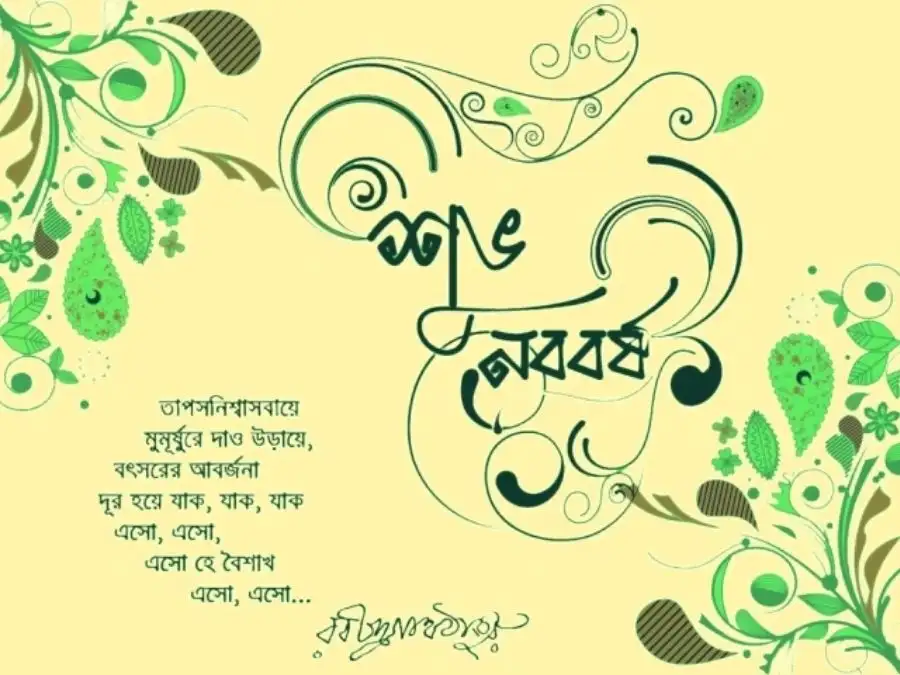 শুভ
নববর্ষ
তাপসনিশ্বাসবায়ে
মুমূর্ষুরে দাও উড়ায়ে,
বৎসরের আবর্জনা
দূর হয়ে যাক, যাক, যাক
এসো, এসো,
এসো হে বৈশাখ
এসো, এসো...
রবীন্দ্রনাথ ঠাকুর